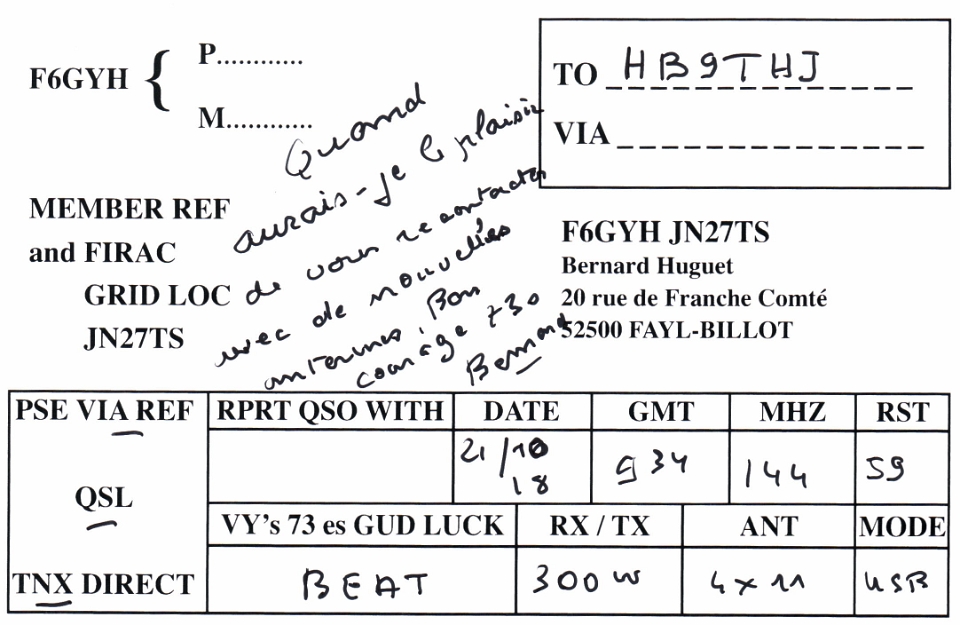 F6GYH { P............
M............
TO HB9THJ
VIA
Quand
aurais-je le plaisir
de vous recontacter
avec de nouvelles
antennes Bon
courage 73s
Bernard
MEMBER REF
and FIRAC
GRID LOC
JN27TS
F6GYH JN27TS
Bernard Huguet
20 rue de Franche Comté
52500 FAYL-BILLOT
PSE VIA REF
QSL
TNX DIRECT
RPRT QSO WITH DATE GMT MHZ RST
21/10 18 934 144 59
VY's 73 es GUD LUCK RX / TX ANT MODE
BEAT 300 W 4 x 11 USB